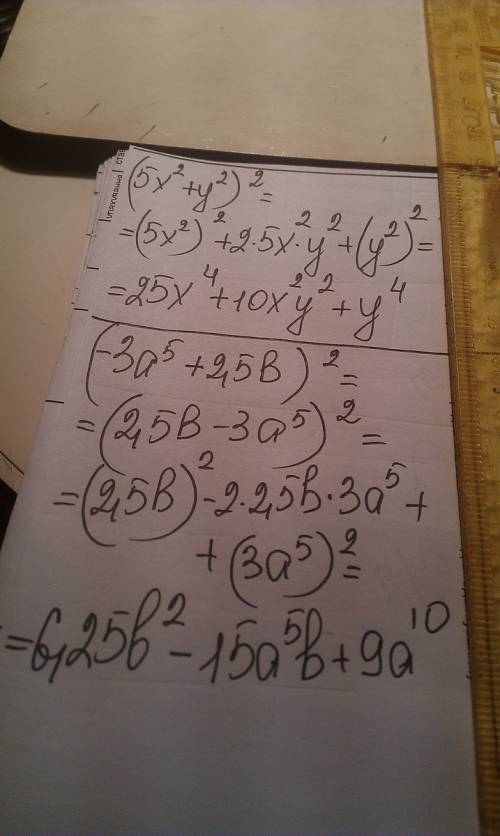 (5x² + y²)² =
= (5x²)² + 2·5x²·y² + (y²)² =
= 25x⁴ + 10x²y² + y⁴
(-3a⁵ + 2,5в)² =
= (2,5в - 3a⁵)² =
= (2,5в)² - 2·2,5в·3a⁵ +
+ (3a⁵)² =
= 6,25в² - 15a⁵в + 9a¹⁰